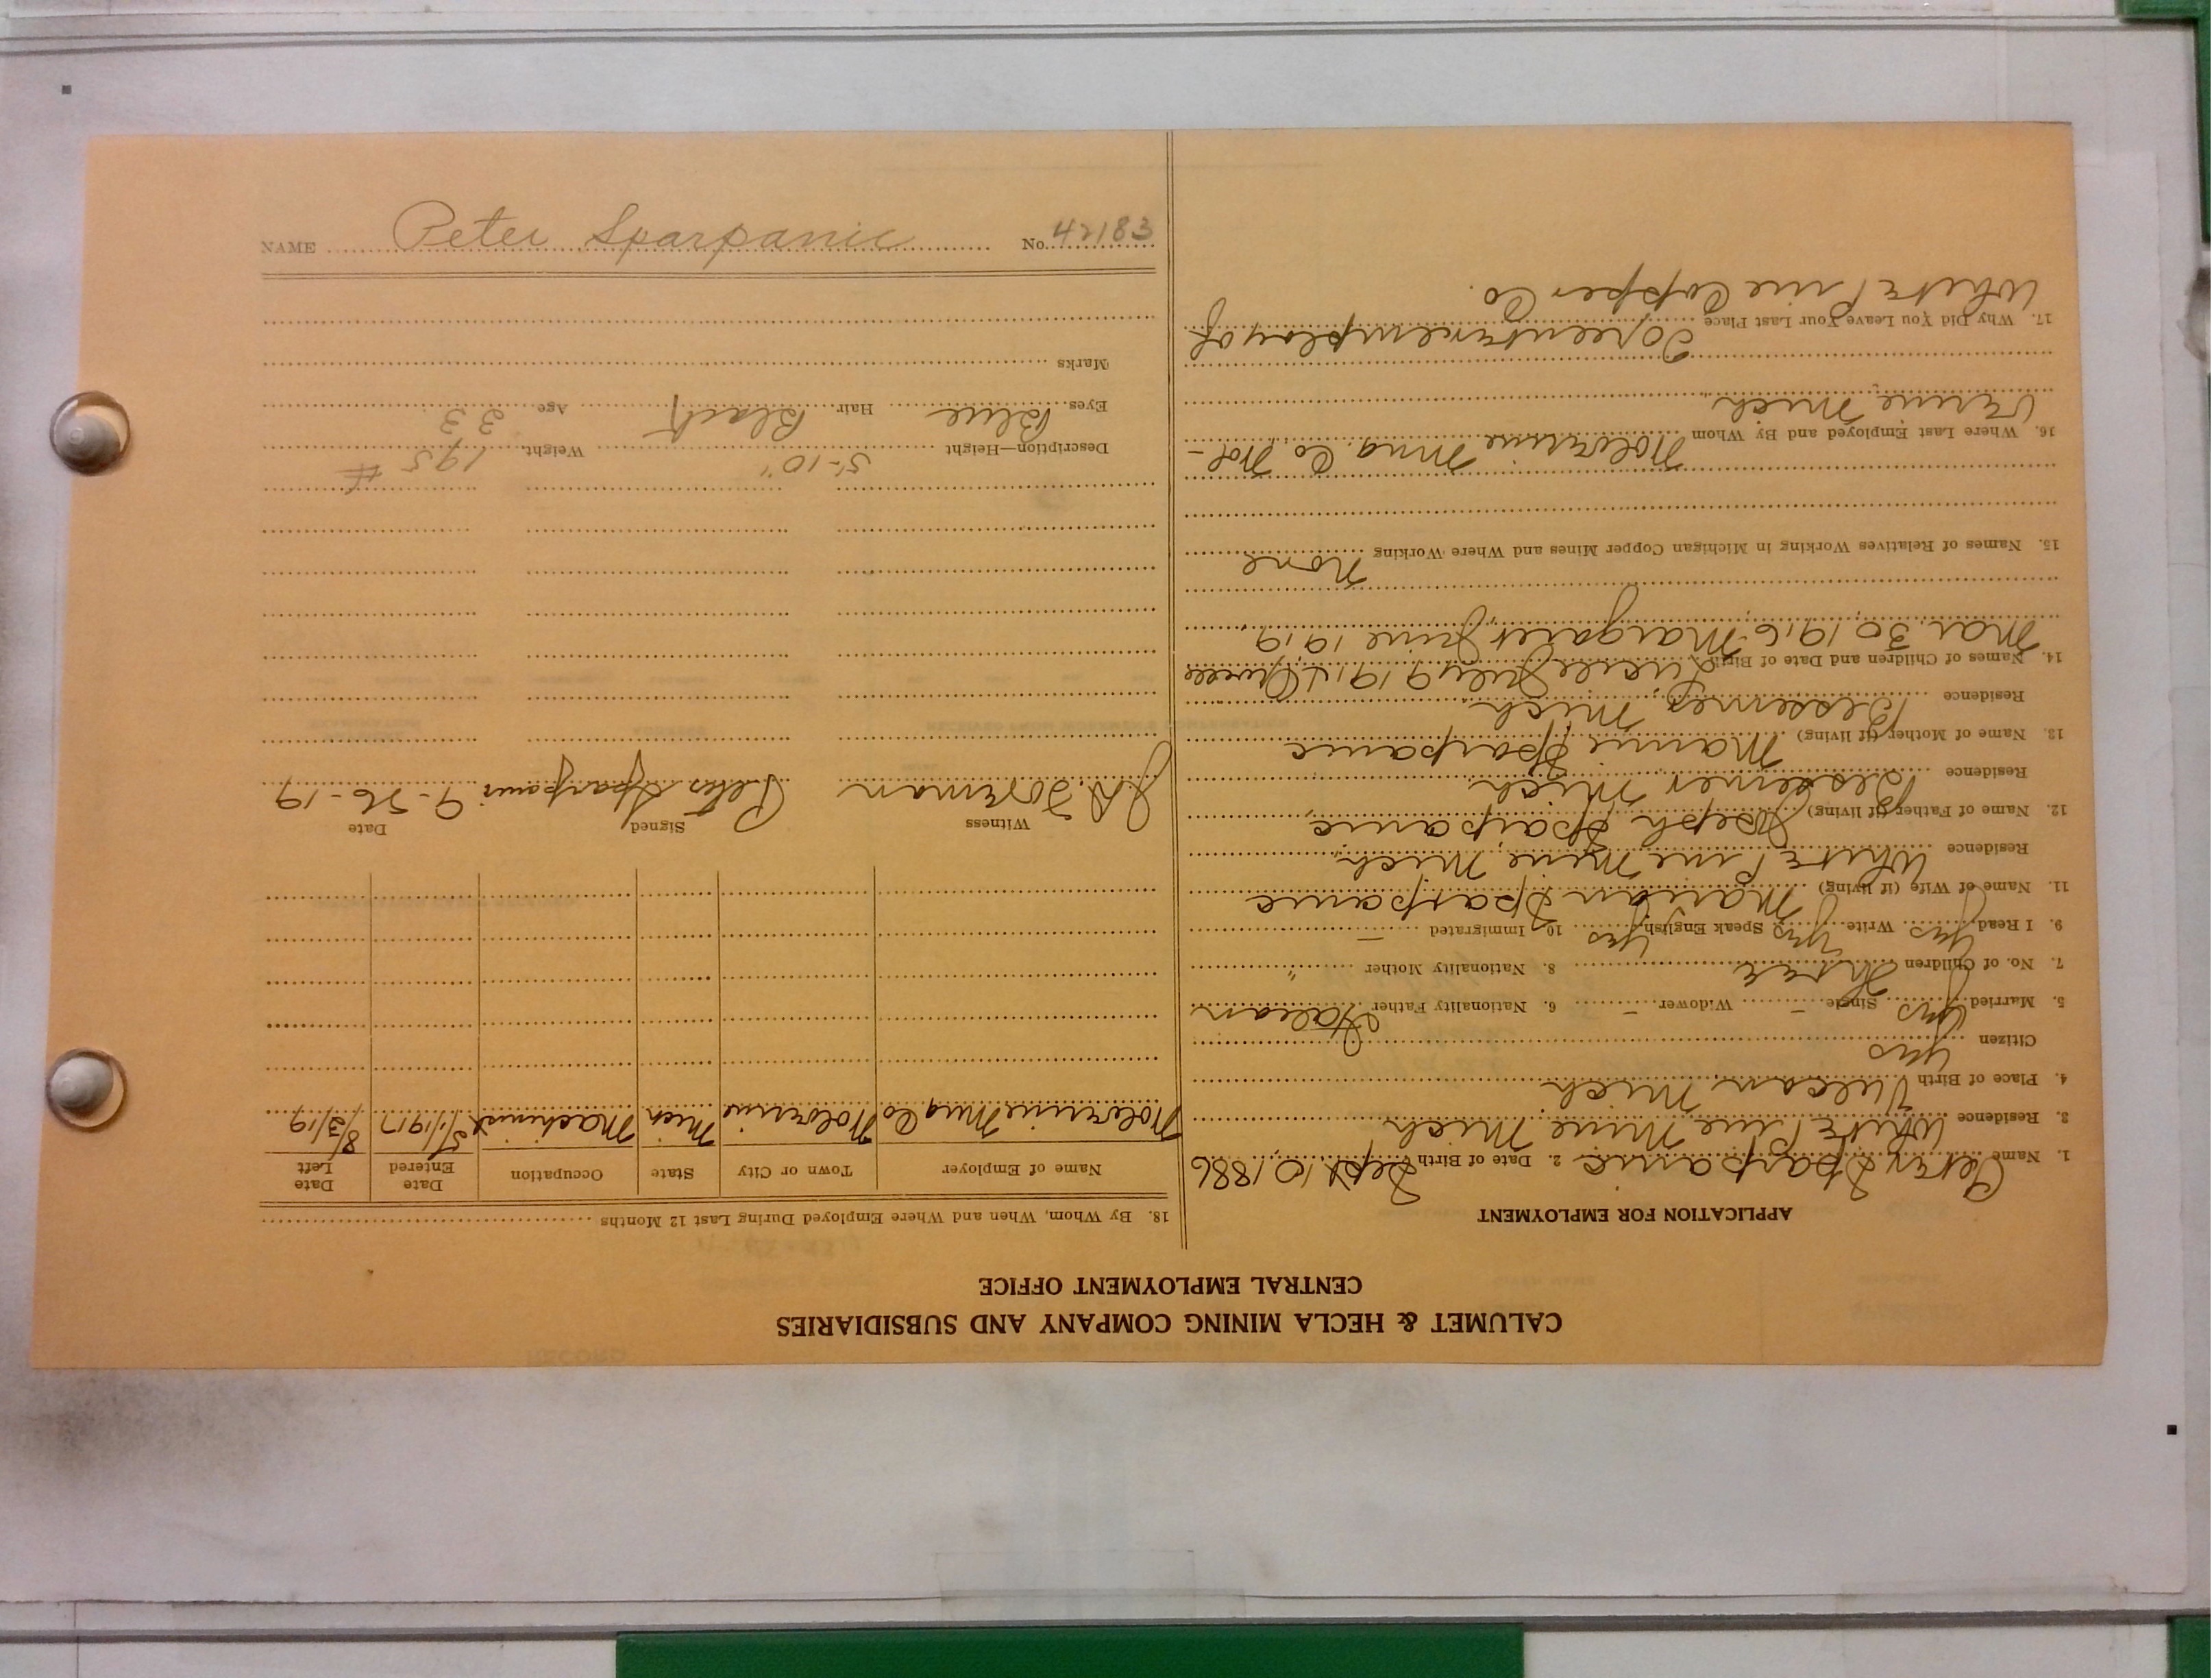 CALUMET & HECLA MINING COMPANY AND SUBSIDIARIES
CENTRAL EMPLOYMENT OFFICE
APPLICATION FOR EMPLOYMENT
1. Name Peter Sparpanic 2. Date of Birth Sept 10, 1886
3. Residence White Pine Mine Mich
4. Place of Birth Vulcan, Mich.
Citizen Yes
5. Married Yes Single – Widower – 6. Nationality Father Italian
7. No. of Children Three 8. Nationality Mother "
9. I Read Yes Write Yes Speak English Yes 10. Immigrated –
11. Name of Wife (if living) Marian Sparpanic
Residence White Pine Mine, Mich.
12. Name of Father (if living) Joseph Sparpanic
Residence Bessemer Mich
13. Name of Mother (if living) Mamie Sparpanic
Residence Bessemer, Mich
14. Names of Children and Date of Birth Lucile July 9 1914
Mar. 30, 1916 Margaret June 19, 19.
15. Names of Relatives Working in Michigan Copper Mines and Where Working None
16. Where Last Employed and By Whom Wolverine Mng. Co Wol-
verine Mich
17. Why Did You Leave Your Last Place To reenter employ of
White Pine Copper Co.
18. By Whom, When and Where Employed During Last 12 Months
Name of Employer Town or City State Occupation Date Entered Date Left
Wolverine Mng Co Wolverine Mich Machinist 5/1/1917 8/3/19
Witness Signed Date
Foreman Peter Sparpanic 9-26-19
Description—Height 5'-10" Weight 195 #
Eyes Blue Hair Black Age 33
Marks
NAME Peter Sparpanic No. 42183